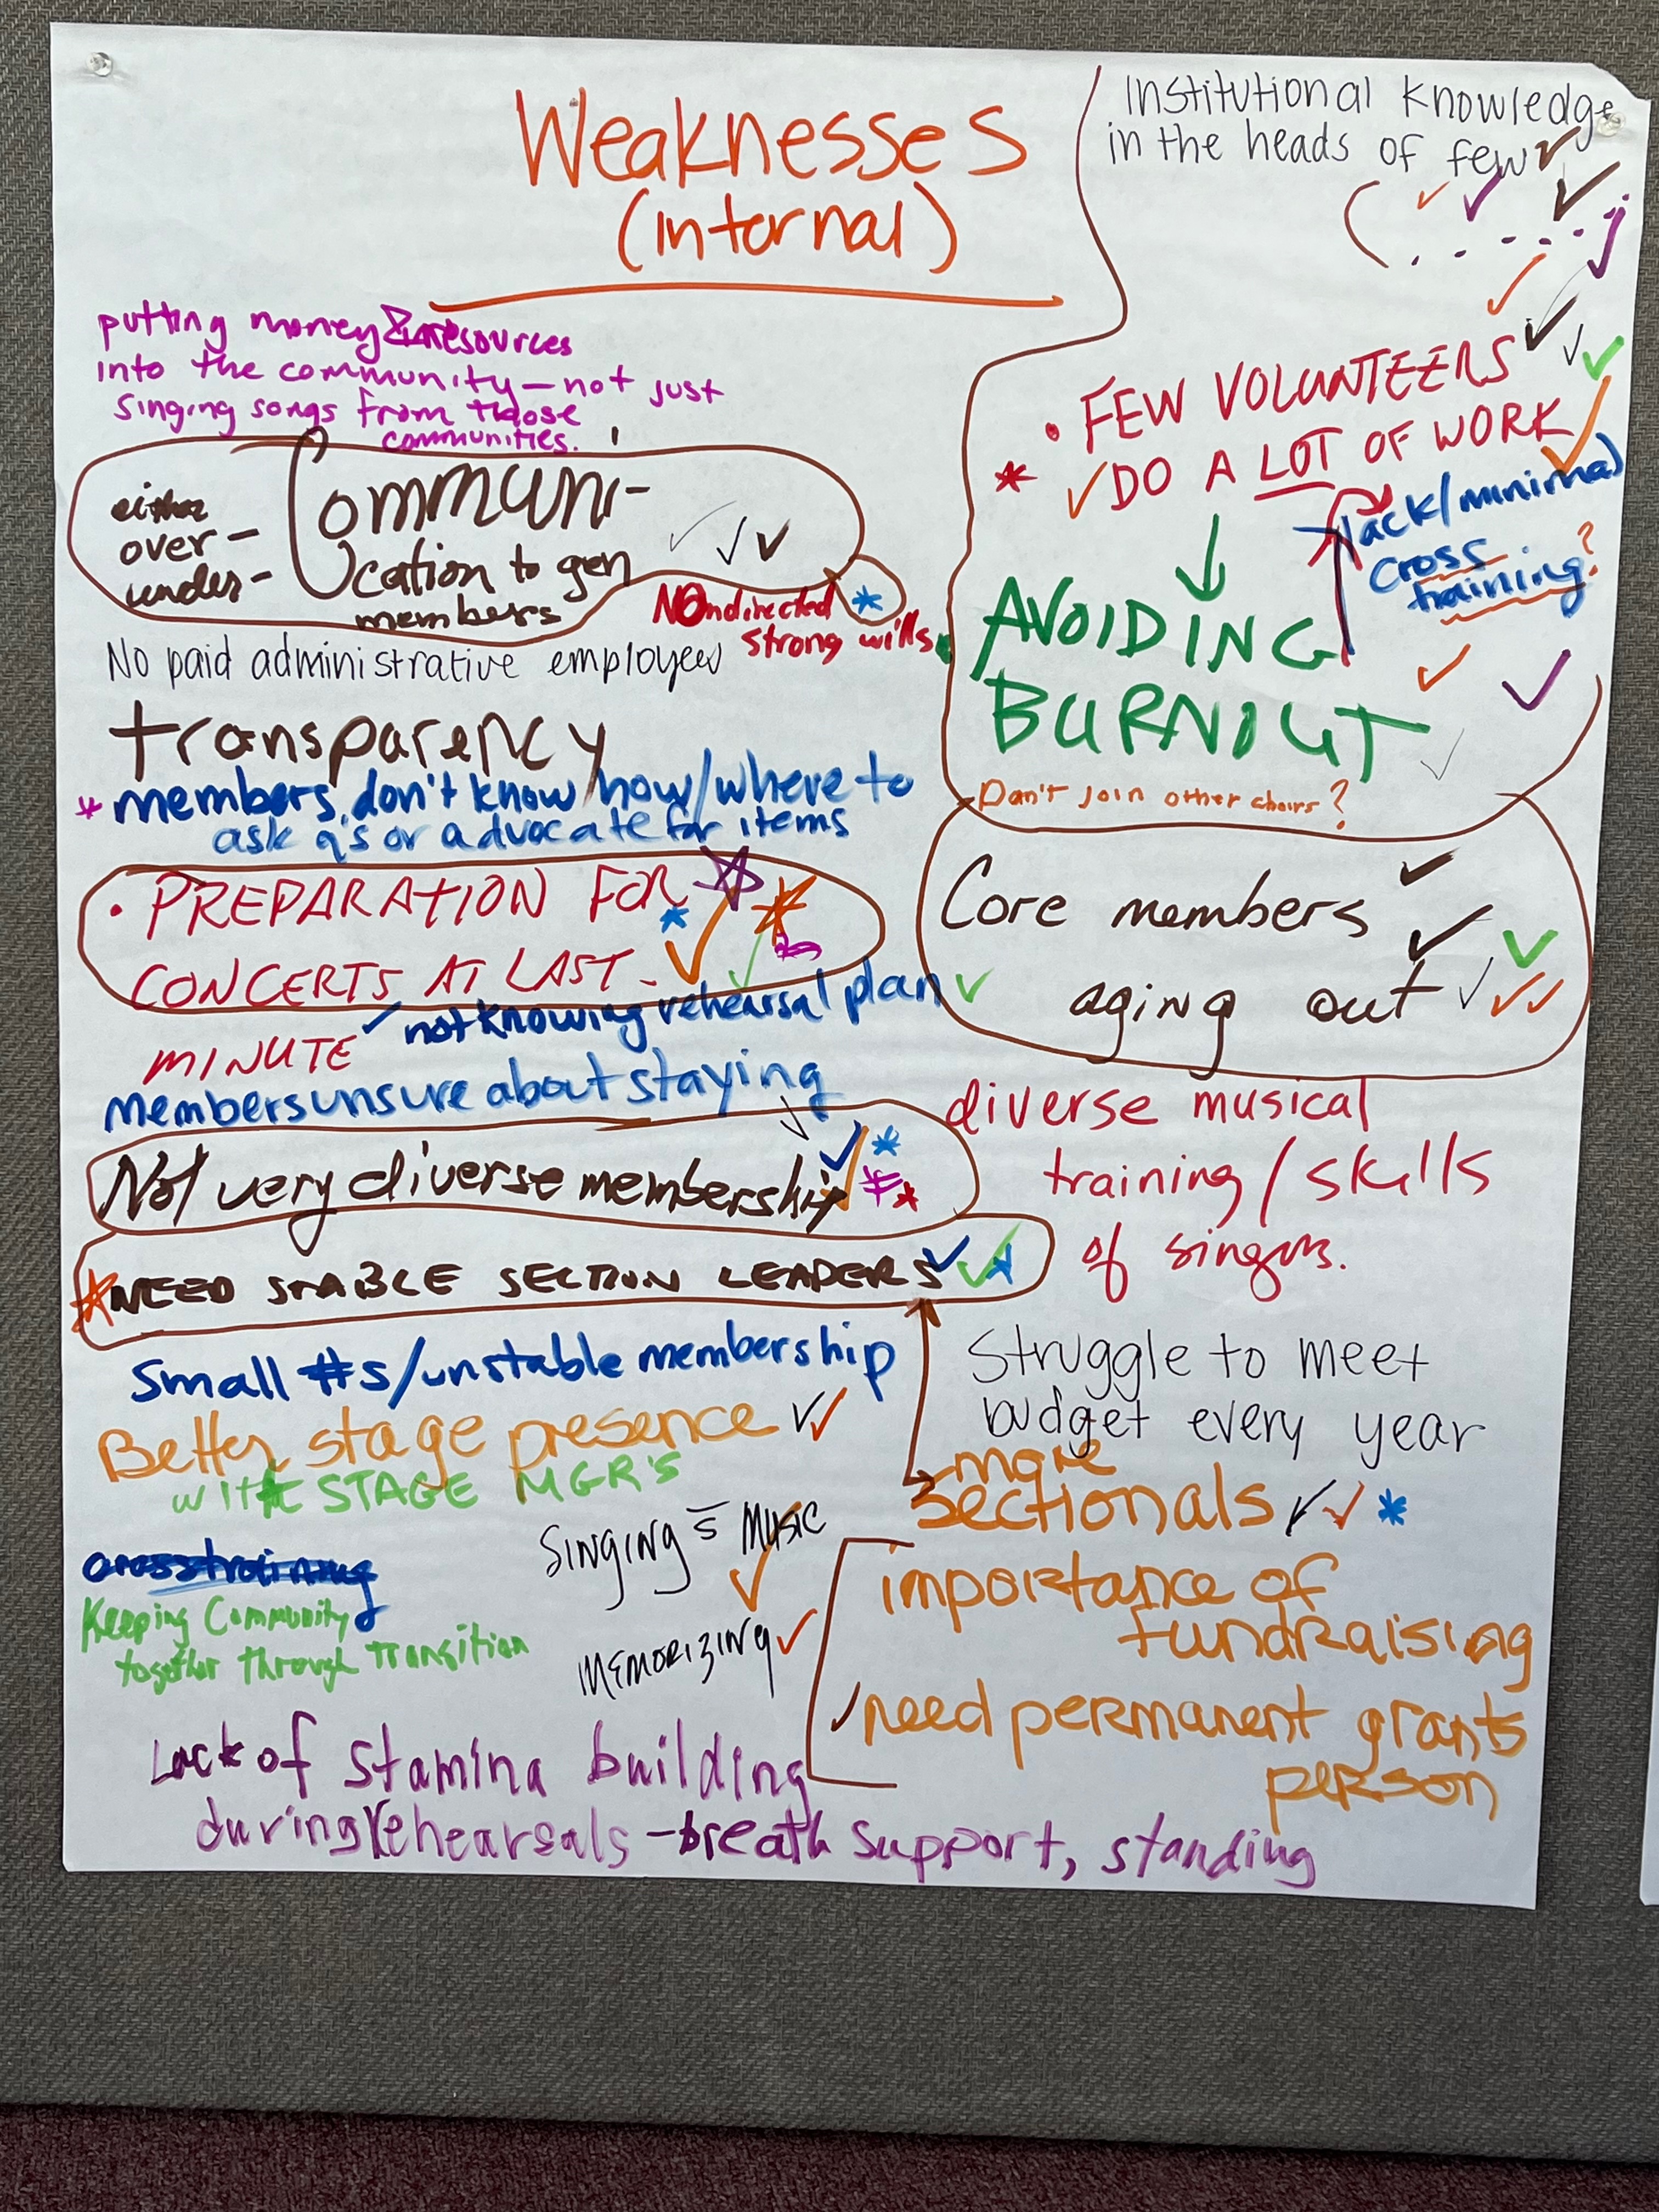 Weaknesses
(Internal)
putting money & resources
into the community - not just
singing songs from those
communities.
either
over -
under -
Communi-
cation to gen
members
NOndirected
strong wills
No paid administrative employees
transparency
* members don't know how/where to
ask q's or advocate for items
• PREPARATION FOR
CONCERTS AT LAST -
MINUTE
not knowing rehearsal plan
members unsure about staying
Not very diverse membership
* NEED STABLE SECTION LEADERS
Small #s/unstable membership
Better stage presence
with STAGE MGR'S
SINGING = MUSIC
MEMORIZING
Keeping Community
together through Transition
Lack of stamina building
during rehearsals - breath support, standing
Institutional knowledge
in the heads of few
• FEW VOLUNTEERS
* DO A LOT OF WORK
lack/minimal
cross
training?
AVOIDING
BURNOUT
Don't join other choirs?
Core members
aging out
diverse musical
training/skills
of singers.
Struggle to meet
budget every year
more
sectionals
importance of
fundraising
need permanent grants
person